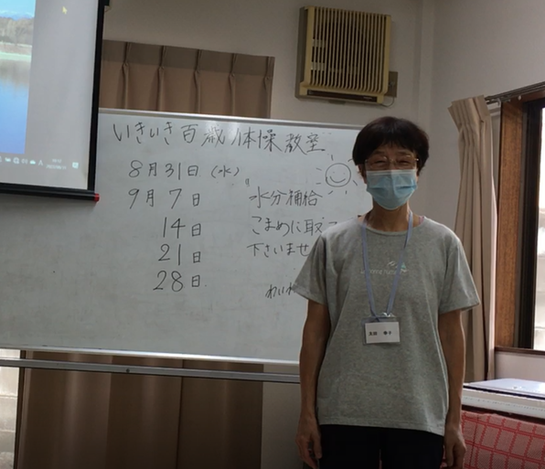 いきいき百歳体操教室
8月31日(水)
9月7日
14日
21日
28日
水分補給
こまめに取っ
下さいませ